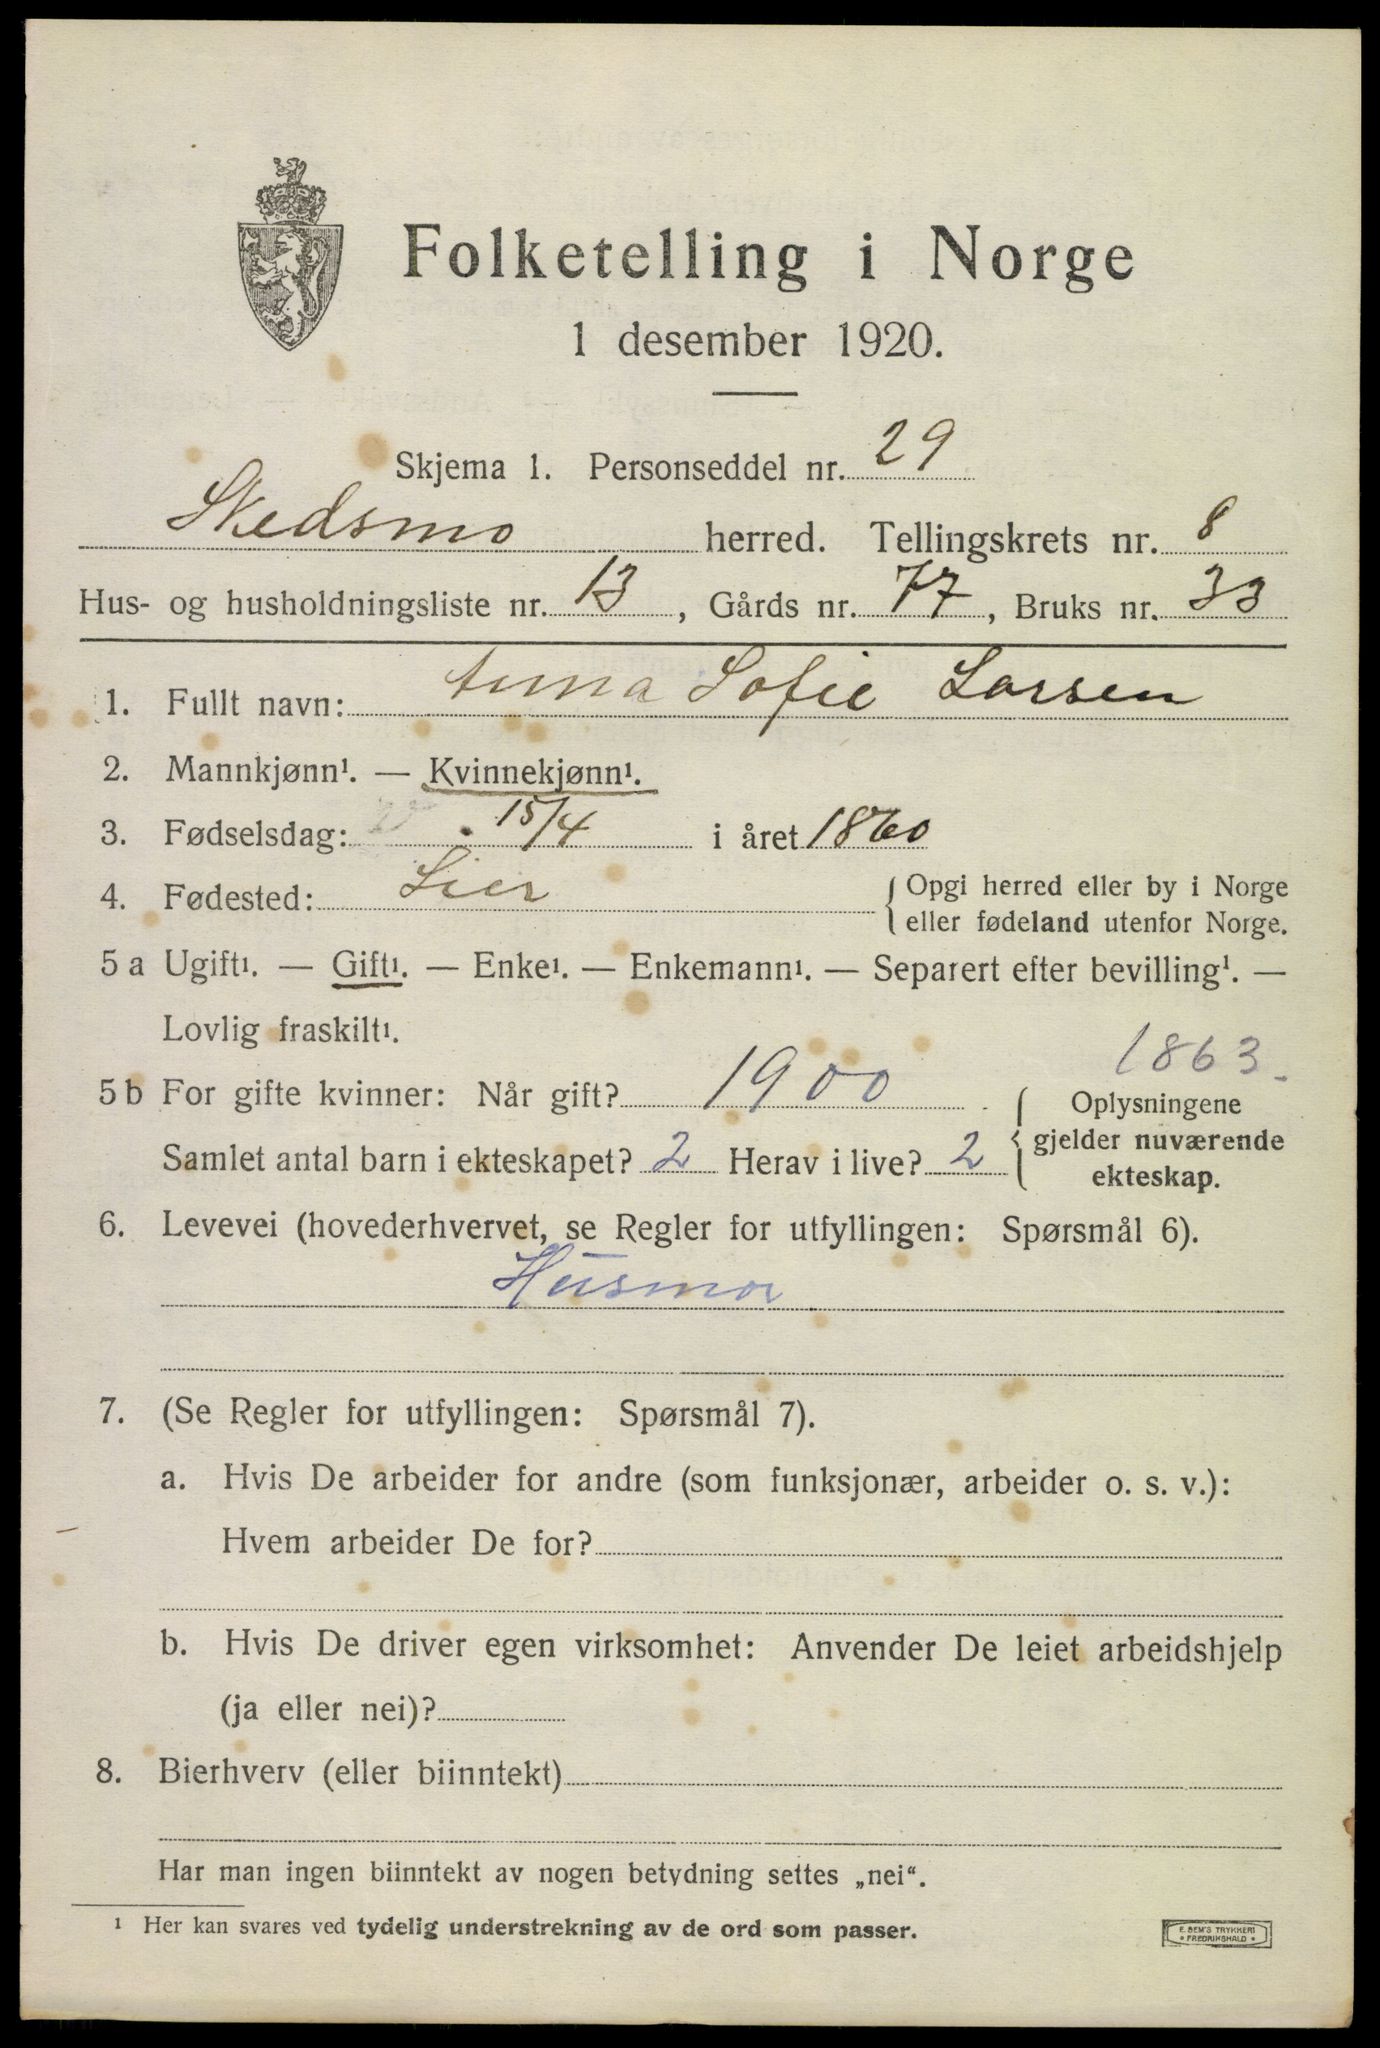 Folketelling i Norge
1 desember 1920.
Skjema 1. Personseddel nr. 29
Skedsmo herred. Tellingskrets nr. 8
Hus- og husholdningsliste nr. 13, Gårds nr. 77, Bruks nr. 33
1. Fullt navn: Anna Sofie Larsen
2. Mannkjønn¹. — Kvinnekjønn¹.
3. Fødselsdag: 15/4 i året 1860
4. Fødested: Lier { Opgi herred eller by i Norge
eller fødeland utenfor Norge.
5 a Ugift¹. — Gift¹. — Enke¹. — Enkemann¹. — Separert efter bevilling¹. —
Lovlig fraskilt¹.
1863
5 b For gifte kvinner: Når gift? 1900 { Oplysningene
gjelder nuværende
ekteskap.
Samlet antal barn i ekteskapet? 2 Herav i live? 2
6. Levevei (hovederhvervet, se Regler for utfyllingen: Spørsmål 6).
Husmor
7. (Se Regler for utfyllingen: Spørsmål 7).
a. Hvis De arbeider for andre (som funksjonær, arbeider o. s. v.):
Hvem arbeider De for?
b. Hvis De driver egen virksomhet: Anvender De leiet arbeidshjelp
(ja eller nei)?
8. Bierhverv (eller biinntekt)
Har man ingen biinntekt av nogen betydning settes „nei“.
¹ Her kan svares ved tydelig understrekning av de ord som passer.
E. SEM'S TRYKKERI
• FREDRIKSHALD •